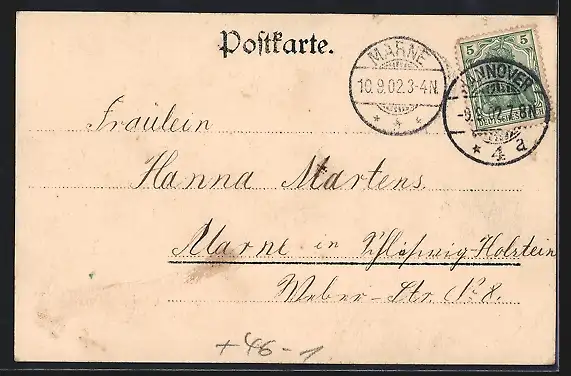 Postkarte.
MARNE
10.9.02.3-4N.
5 5
HANNOVER
-9.9.02.7-8N
* 4 a
Fräulein
Hanna Martens
Marne in Schleswig-Holstein
Weber-Str. No 8.
+ 46 -